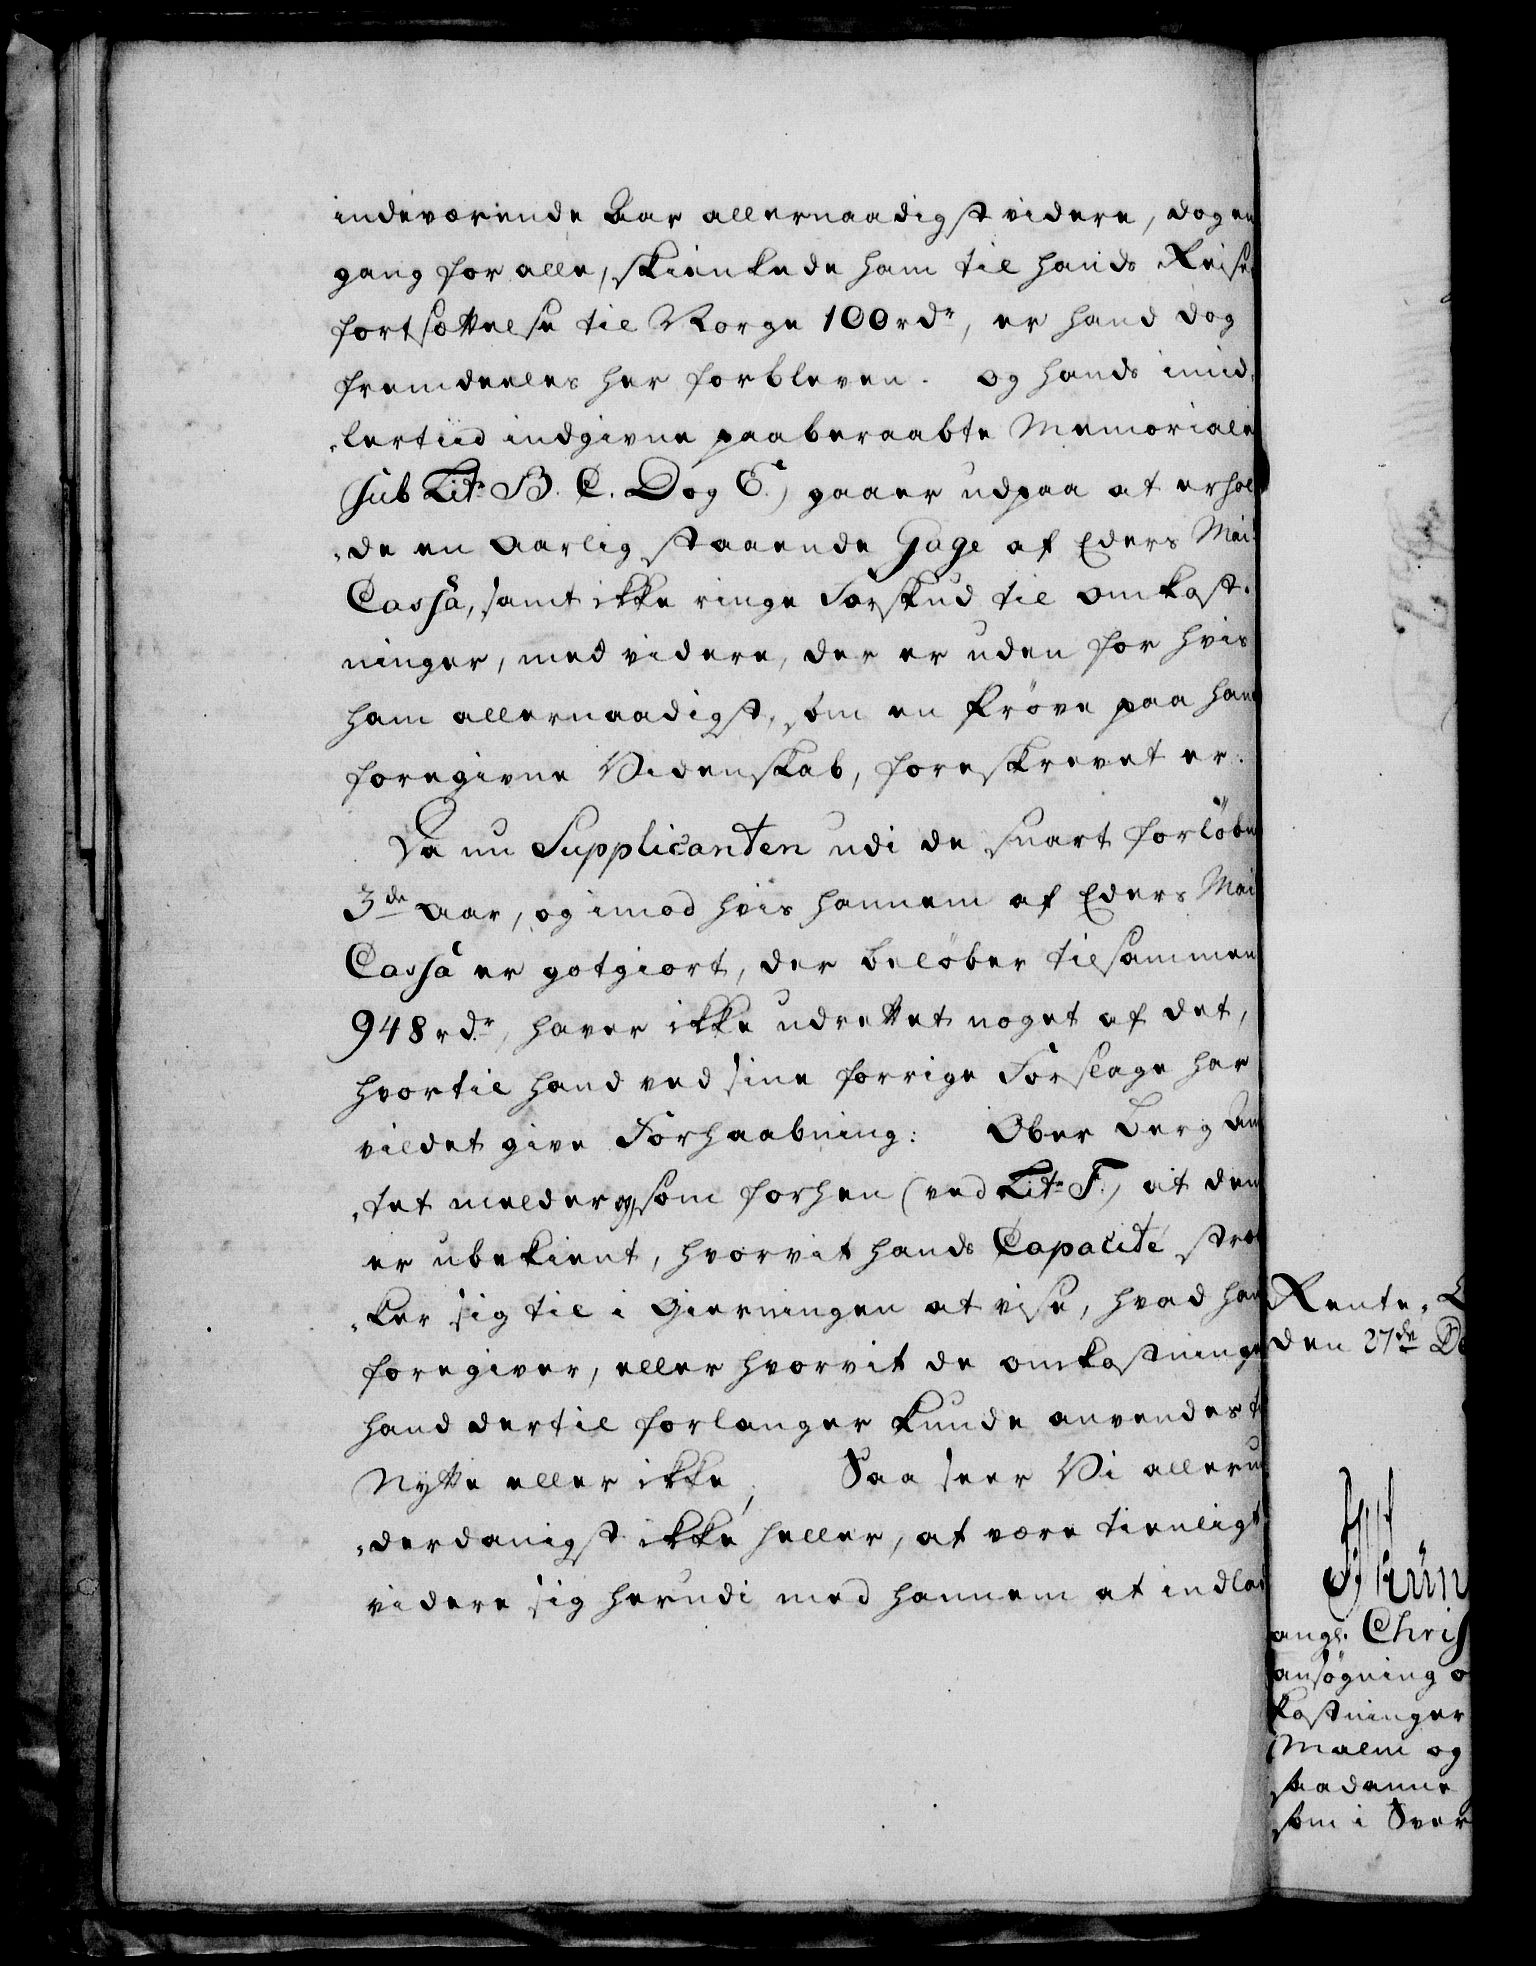 indeværende Aar allernaadigst videre, dog en
gang for alle, skienkede ham til hands Reise,
fortsættelse til Norge 100 rdr, er hand dog
fremdeeles her forbleven. og hands imid,
,lertiid indgivne paaberaabte Memoriale
(sub Litr B. C. D og E.) gaaer ud paa at erhol
,de en Aarlig staaende Gage af Eders Mai:
Cassa, samt ikke ringe Forskud til omkost,
ninger, med videre, der er uden for hvis
ham allernaadigst, som en Prøve paa hans
foregivne Videnskab, foreskrevet er.
Da nu Supplicanten udi de snart forløbne
3de Aar, og imod hvis hannem af Eders Mai
Cassa er gotgiort, der beløber tilsammen
948 rdr, haver ikke udrettet noget af det,
hvortil hand ved sine forrige Forslage har
vildet give Forhaabning: Ober Berg Am
,tet melder og, som forhen (ved Litr F.) at den
er ubekient, hvorvit hands Capacité stræ
,ker sig til i Gierningen at vise, hvad han
foregiver, eller hvorvit de omkostninge
hand dertil forlanger kunde anvendes t
Nytte eller ikke; Saa seer Vi allerun
,derdanigst ikke heller, at være tienligt
videre sig herudi med hannem at indlad
Rente,
den 27de De
ang: Chris
ansøgning o
kostninger
Malm og
saadanne
som i Sver